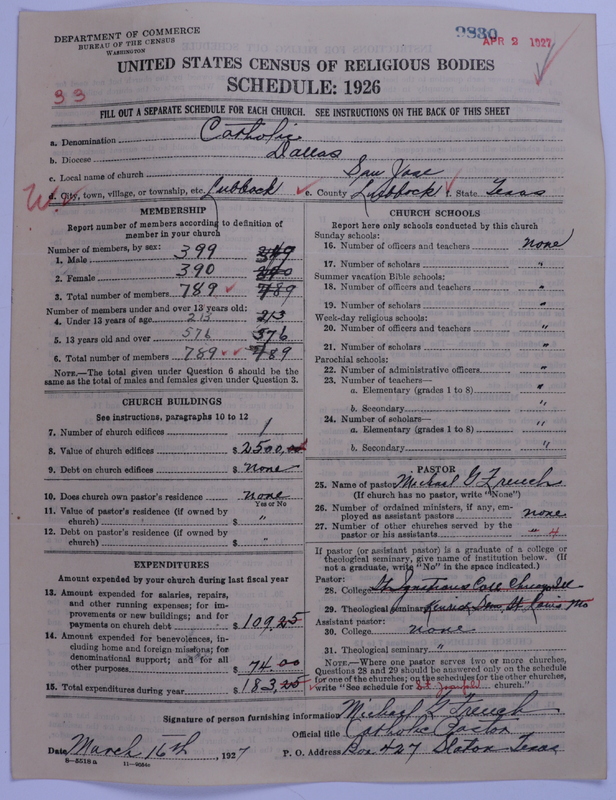 DEPARTMENT OF COMMERCE
BUREAU OF THE CENSUS
WASHINGTON
9880
APR 2 1927
UNITED STATES CENSUS OF RELIGIOUS BODIES
SCHEDULE: 1926
33
FILL OUT A SEPARATE SCHEDULE FOR EACH CHURCH. SEE INSTRUCTIONS ON THE BACK OF THIS SHEET
a. Denomination Catholic
b. Diocese Dallas
c. Local name of church San Jose
d. City, town, village, or township, etc. Lubbock e. County Lubbock f. State Texas
MEMBERSHIP
Report number of members according to definition of
member in your church
Number of members, by sex:
1. Male 399
2. Female 390
3. Total number of members 789 789
Number of members under and over 13 years old:
4. Under 13 years of age 213 213
5. 13 years old and over 576 576
6. Total number of members 789 789
NOTE.—The total given under Question 6 should be
same as the total of males and females given under Question 3.
CHURCH BUILDINGS
See instructions, paragraphs 10 to 12
7. Number of church edifices 1
8. Value of church edifices $ 2500,00
9. Debt on church edifices $ none
10. Does church own pastor's residence none
Yes or No
11. Value of pastor's residence (if owned by
church) $ "
12. Debt on pastor's residence (if owned by
church) $ "
EXPENDITURES
Amount expended by your church during last fiscal year
13. Amount expended for salaries, repairs,
and other running expenses; for im-
provements or new buildings; and for
payments on church debt $ 109,25
14. Amount expended for benevolences, in-
cluding home and foreign missions; for
denominational support; and for all
other purposes $ 74.00
15. Total expenditures during year $ 183,25
CHURCH SCHOOLS
Report here only schools conducted by this church
Sunday schools:
16. Number of officers and teachers none
17. Number of scholars "
Summer vacation Bible schools:
18. Number of officers and teachers "
19. Number of scholars "
Week-day religious schools:
20. Number of officers and teachers "
21. Number of scholars "
Parochial schools:
22. Number of administrative officers "
23. Number of teachers—
a. Elementary (grades 1 to 8) "
b. Secondary "
24. Number of scholars—
a. Elementary (grades 1 to 8) "
b. Secondary "
PASTOR
25. Name of pastor Michael G French
(If church has no pastor, write "None")
26. Number of ordained ministers, if any, em-
ployed as assistant pastors none
27. Number of other churches served by the
pastor or his assistants " 4
If pastor (or assistant pastor) is a graduate of a college or
theological seminary, give name of institution below. (If
not a graduate, write "No" in the space indicated.)
Pastor:
28. College St Ignatius Coll Chicago Ill
29. Theological seminary Kenrick Sem St Louis Mo
Assistant pastor:
30. College none
31. Theological seminary "
NOTE.—Where one pastor serves two or more churches,
Questions 28 and 29 should be answered only on the schedule
for one of the churches; on the schedules for the other churches,
write "See schedule for church."
Signature of person furnishing information Michael G French
Official title Catholic Pastor
Date March 16th, 1927 P. O. Address Box 427 Slaton Texas
8—5518a 11—9084